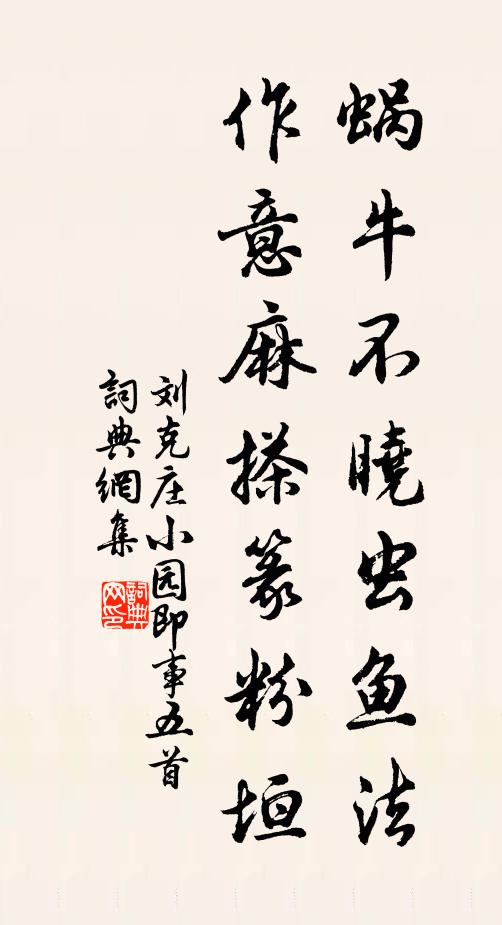 蜗牛不曉虫鱼法
作意麻搽篆粉垣
刘克庄小园即事五首
詞典網集
詞典
网印